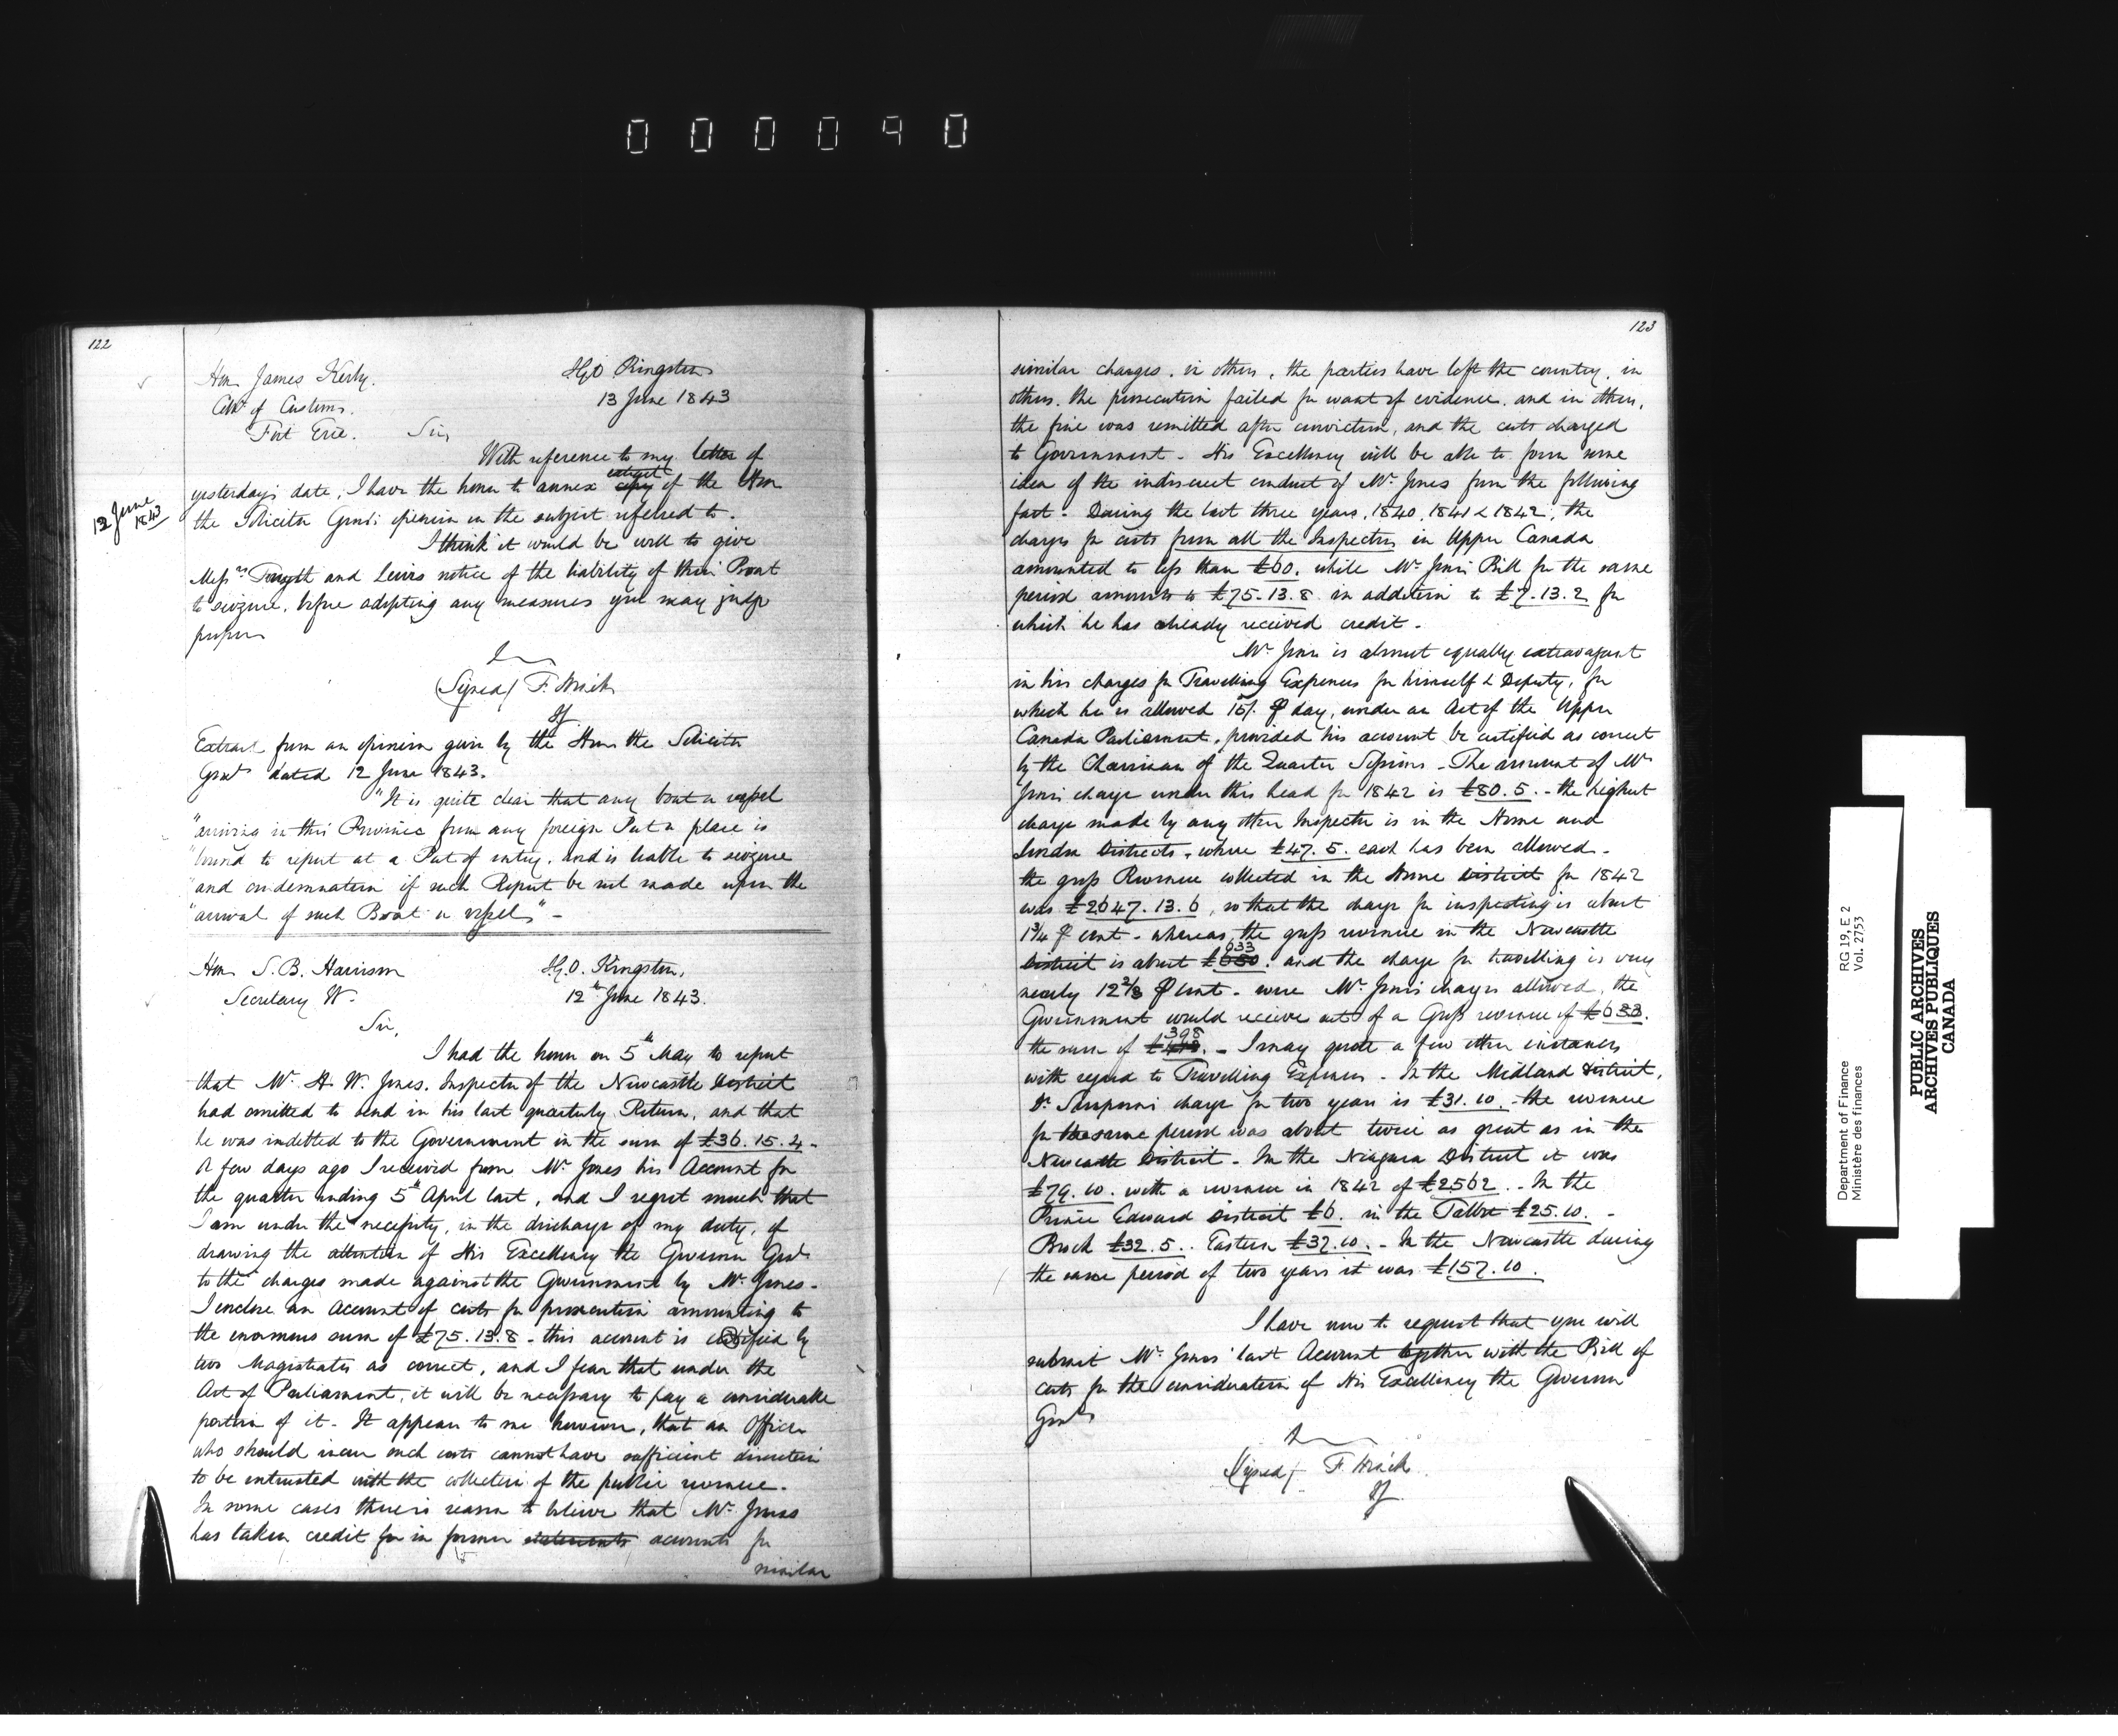 000090
122
Hon James Kerby.
Collr of Customs.
Fort Erie.
I.G.O. Kingston
13 June 1843
Sir,
With reference to my letter of
12 June 1843
yesterday's date, I have the honor to annex copy extract of the Hon
the Solicitor Genl's opinion on the subject referred to.
I think it would be well to give
Messrs Forsyth and Lewis notice of the liability of their Boat
to seizure, before adopting any measures you may judge
proper
(Signed) F. Hincks
IG
Extract from an opinion given by the Hon the Solicitor
Genl dated 12 June 1843.
"It is quite clear that any boat or vessel
"arriving in this Province from any foreign Port or place is
"bound to report at a Port of entry, and is liable to seizure
"and condemnation if such Report be not made upon the
"arrival of such Boat or vessel" -
Hon S. B. Harrison
Secretary W.
I.G.O. Kingston,
12th June 1843.
Sir,
I had the honor on 5th May to report
that Mr H. W. Jones, Inspector of the Newcastle District
had omitted to send in his last quarterly Return, and that
he was indebted to the Government in the sum of £36.15.4 -
A few days ago I received from Mr Jones his Account for
the quarter ending 5th April last, and I regret much that
I am under the necessity, in the discharge of my duty, of
drawing the attention of His Excellency the Governor Genl
to the charges made against the Government by Mr Jones -
I enclose an Account of costs for prosecution amounting to
the enormous sum of £75.13.8 - this account is certified by
two Magistrates as correct, and I fear that under the
Act of Parliament, it will be necessary to pay a considerable
portion of it - It appears to me however, that an Officer
who should incur such costs cannot have sufficient discretion
to be entrusted with the collection of the public revenue -
In some cases there is reason to believe that Mr Jones
has taken credit for in former statements accounts for
similar
123
similar charges, in others, the parties have left the country, in
others, the prosecution failed for want of evidence, and in others,
the fine was remitted after conviction, and the costs charged
to Government - His Excellency will be able to form some
idea of the indiscreet conduct of Mr Jones from the following
fact - During the last three years, 1840, 1841 & 1842, the
charges for costs from all the Inspectors in Upper Canada
amounted to less than £60, while Mr Jones' Bill for the same
period amounts to £75.13.8 in addition to £7.13.2 for
which he has already received credit -
Mr Jones is almost equally extravagant
in his charges for Travelling Expences for himself & Deputy, for
which he is allowed 15/. ⅌ day, under an Act of the Upper
Canada Parliament, provided his account be certified as correct
by the Chairman of the Quarter Sessions - The amount of Mr
Jones' charge under this head for 1842 is £80.5. - the highest
charge made by any other Inspector is in the Home and
London Districts, where £47.5. each has been allowed -
the gross Revenue collected in the Home District for 1842
was £2647.13.6, so that the charge for inspecting is about
1¾ ⅌ cent - whereas the gross revenue in the Newcastle
District is about £650 633. and the charge for travelling is very
nearly 12⅔ ⅌ cent - were Mr Jones' charges allowed, the
Government would receive out of a Gross revenue of £633.
the sum of £ 398. - I may quote a few other instances
with regard to Travelling Expences - In the Midland District,
Dr Sampson's charge for two years is £31.10. - the revenue
for the same period was about twice as great as in the
Newcastle District - In the Niagara District it was
£79.10. with a revenue in 1842 of £2562. - In the
Prince Edward District £6. in the Talbot £25.10. -
Brock £32.5.. Eastern £37.10. - In the Newcastle during
the same period of two years it was £157.10.
I have now to request that you will
submit Mr Jones' last Account together with the Bill of
costs for the consideration of His Excellency the Governor
Genl
(Signed) F. Hincks
IG
Department of Finance
Ministère des finances
RG 19, E 2
Vol. 2753
PUBLIC ARCHIVES
ARCHIVES PUBLIQUES
CANADA